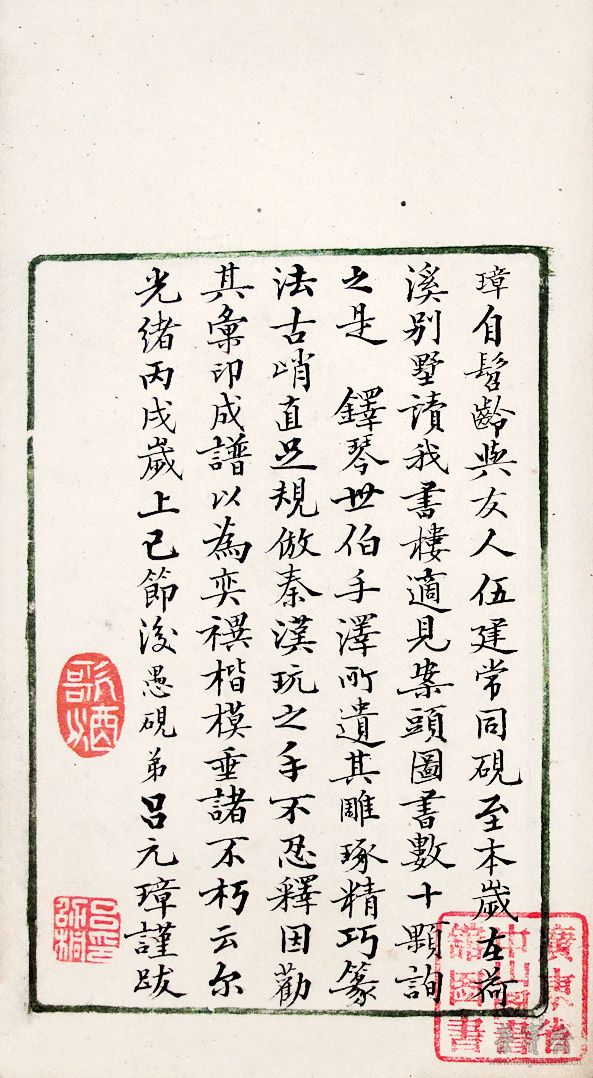 璋自髫齡與友人伍建常同硯至本歲在荷
溪別墅讀我書樓適見案頭圖書數十顆詢
之是　鐸琴世伯手澤所遺其雕琢精巧篆
法古峭直足規倣秦漢玩之手不忍釋因勸
其彙印成譜以為奕禩楷模垂諸不朽云尔
光緒丙戌歲上巳節後愚硯弟呂元璋謹跋
歌酒
廣東省
中山圖
書館